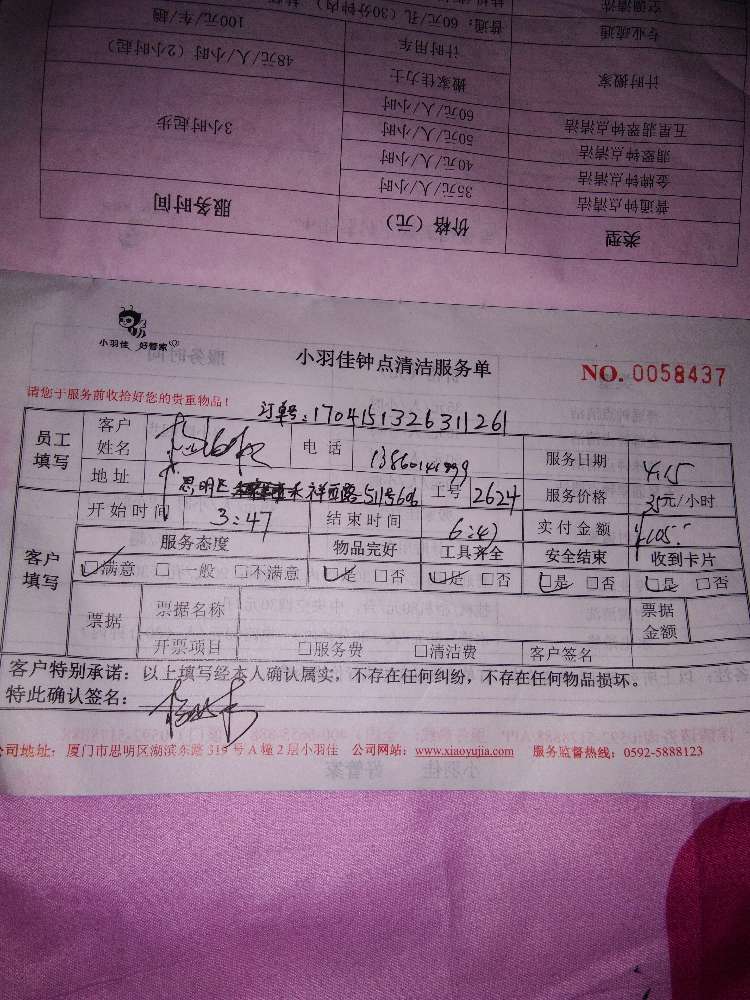 类型 价格（元） 服务时间
普通钟点清洁 35元/人/小时 3小时起步
金牌钟点清洁 40元/人/小时
翡翠钟点清洁 50元/人/小时
五星翡翠钟点清洁 60元/人/小时
计时搬家 搬家佳力士 48元/人/小时（2小时起）
计时用车 100元/车/趟
专业疏通 普通：60元/孔（30分钟内）
空调清洗
小羽佳 好管家
小羽佳钟点清洁服务单
NO. 0058437
请您于服务前收拾好您的贵重物品！
订单号：1704151326311261
员工填写 客户姓名 电话 服务日期 4.15
地址 思明区 禾祥西路511号606 工号 2624 服务价格 35元/小时
客户填写 开始时间 3:47 结束时间 6:47 实付金额 ¥105
服务态度 物品完好 工具齐全 安全结束 收到卡片
满意 一般 不满意 是 否 是 否 是 否 是 否
票据 票据名称 票据金额
开票项目 服务费 清洁费 客户签名
客户特别承诺：以上填写经本人确认属实，不存在任何纠纷，不存在任何物品损坏。
特此确认签名：
公司地址：厦门市思明区湖滨东路319号A幢2层小羽佳 公司网站：www.xiaoyujia.com 服务监督热线：0592-5888123